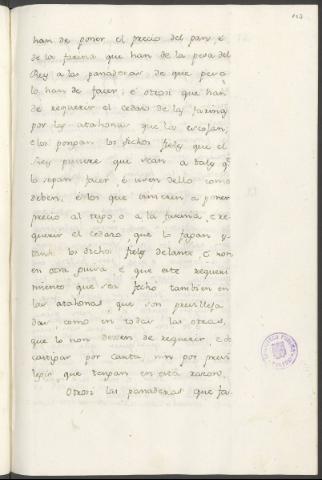 han de poner el precio del pan, é
de la farina que han de la pesa del
Rey a los panaderos de que peso
lo han de facer; é otrosi que han
de requerir el cedazo de la farina
por las atahonas que los
é los pongan los dichos fieles que el
Rey pusiere que sean a tales q.e
lo sepan facer, é usen dello como
deben, é los que vinieren a poner
precio al trigo, o a la farina, é re-
querir el cedazo, que lo fagan es-
tando los dichos fieles delante, é non
en otra guisa, é que este requeri-
miento que sea fecho tambien en
las atahonas que son previllejia-
das, como en todas las otras,
que lo non dexen de requerir, é de
castigar por carta, nin por previ-
legio que tengan en esta razon.
Otrosi las panaderas que fa-